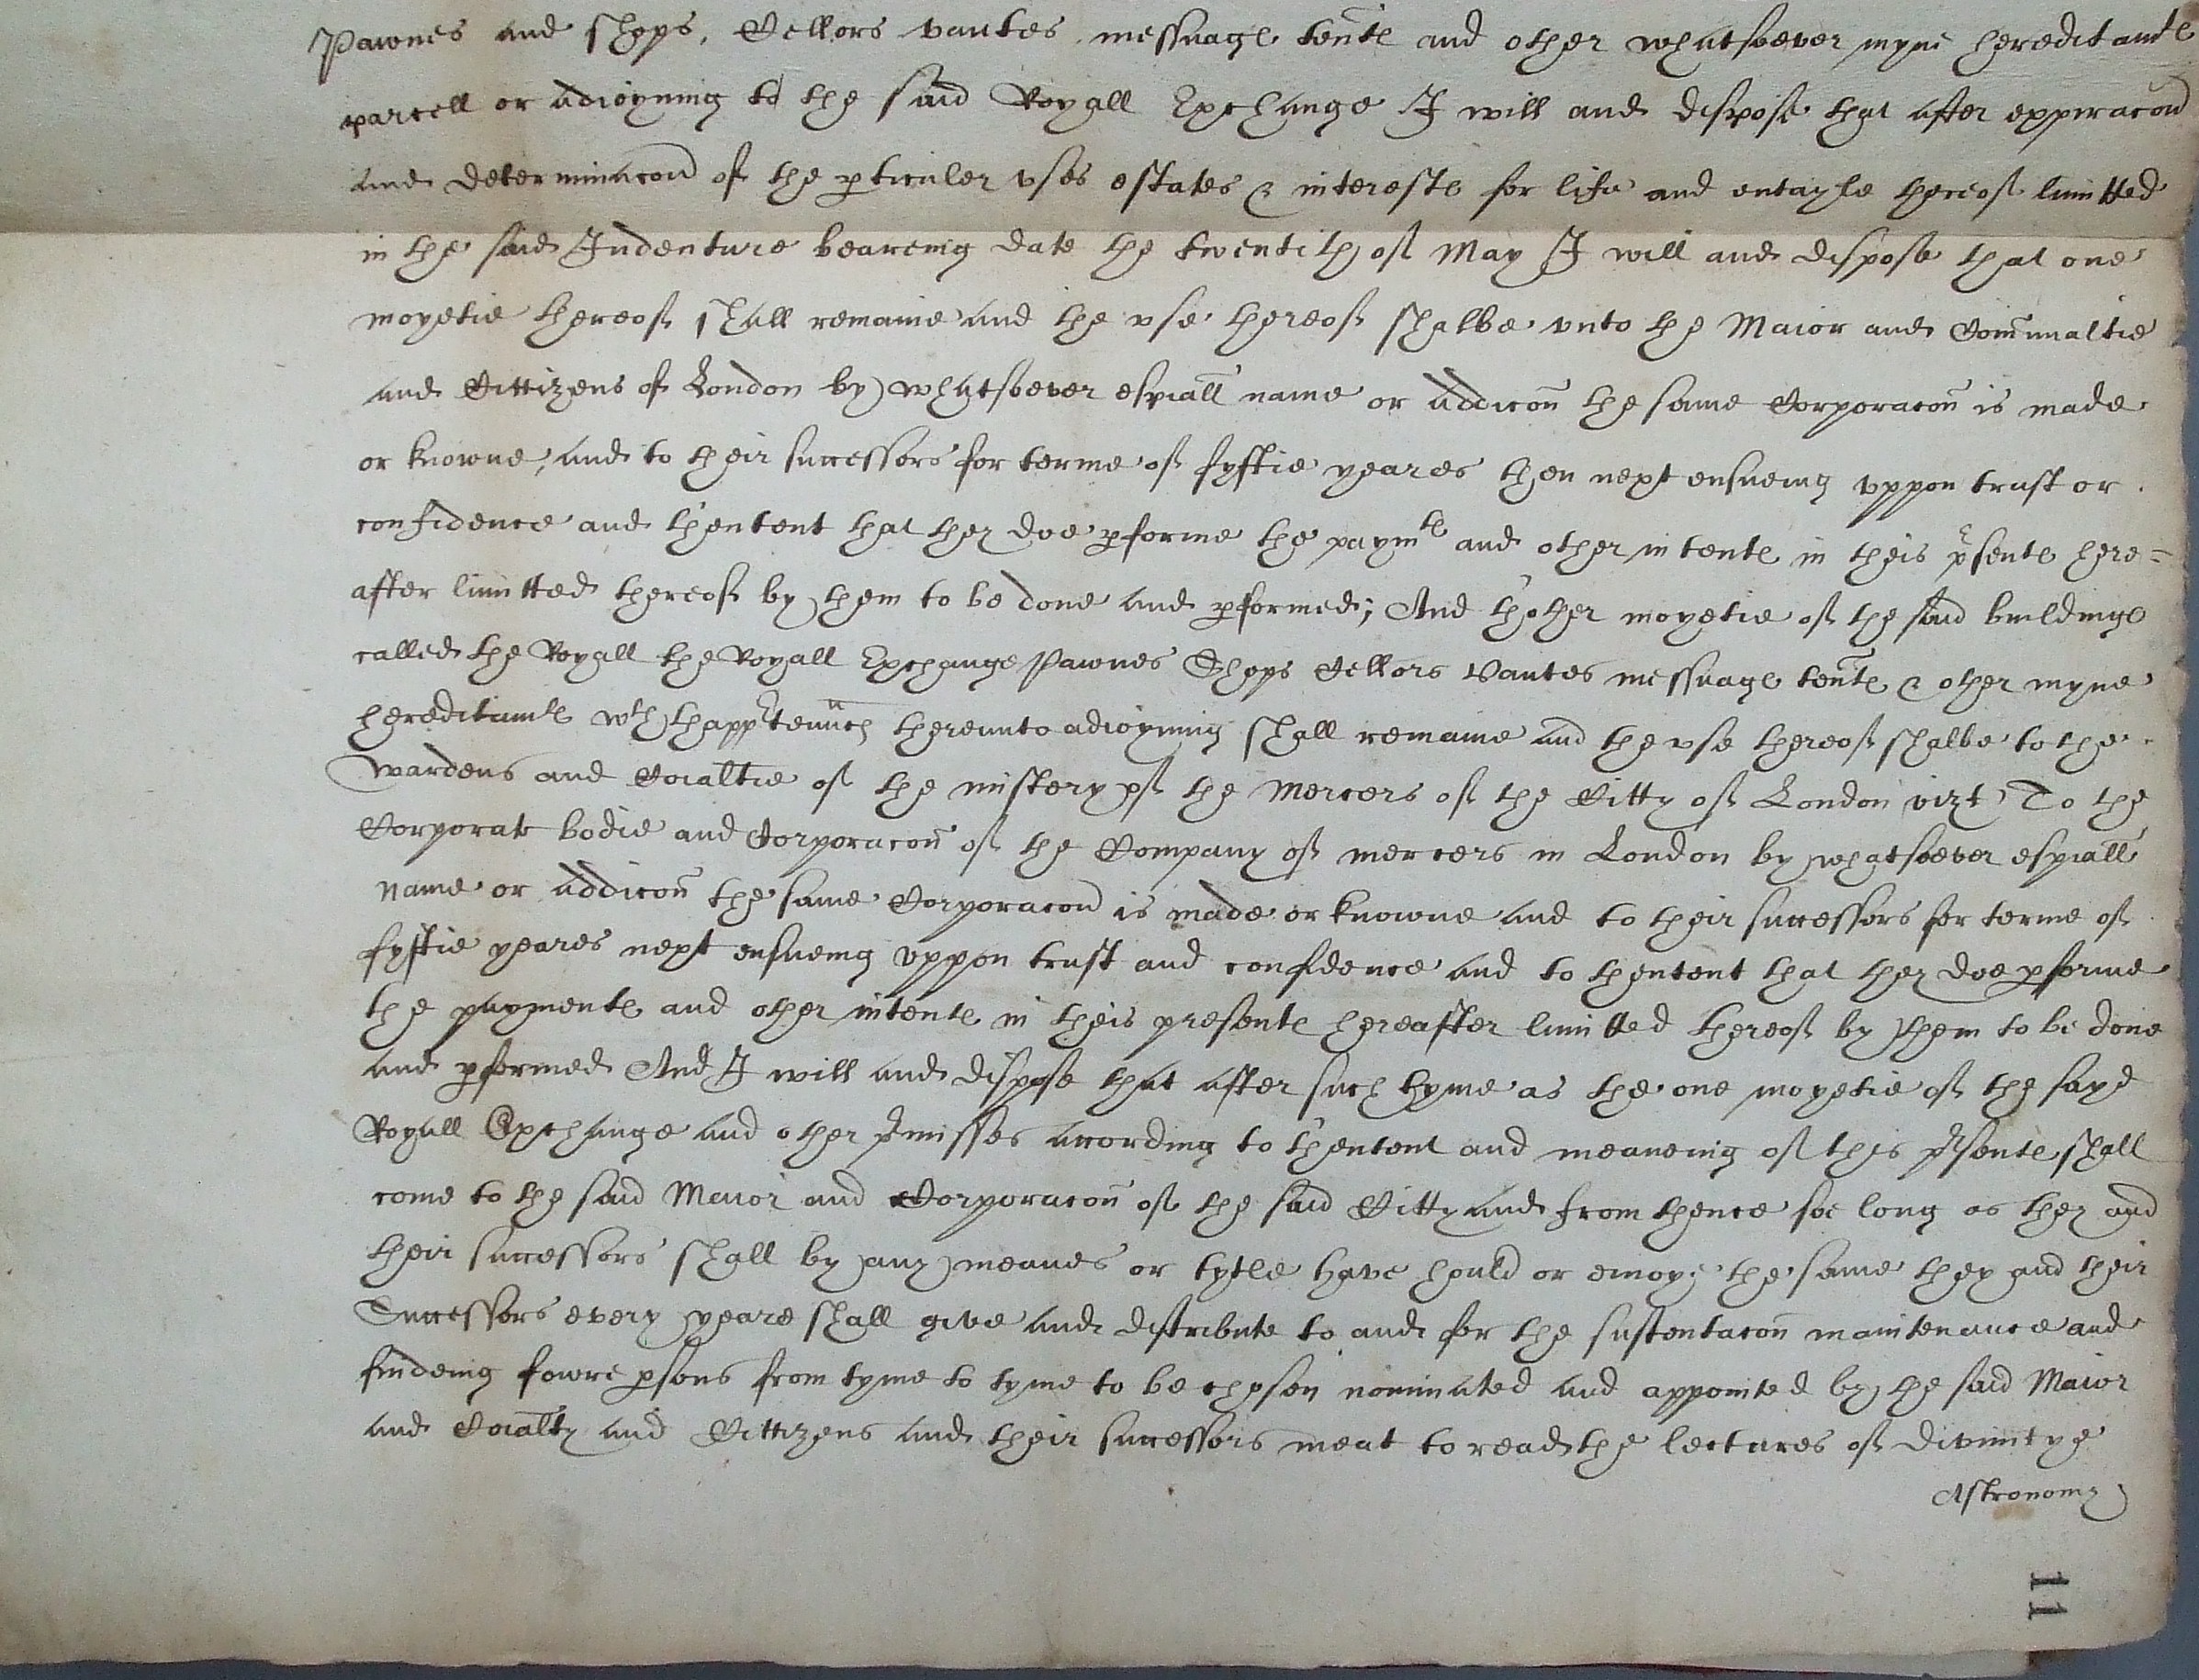 Pawnes and shops, Cellors vautes messuages tenn̄ts and other whatsoever myne hereditamts
parcell or adioyning to the said Royall Exchange I will and dispose that after expiracōn
and determinacōn of the pticuler vses estates & interests for life and entayle thereof limitted
in the said Indenture beareing date the twentith of May I will and dispose that one
moyetie thereof shall remaine and the vse thereof shalbe vnto the Maior and Com̄unaltie
and Cittizens of London by whatsoever espiall name or addicōn the same Corporacōn is made
or knowne, and to their successors for terme of fyftie yeares then next ensueing vppon trust or
confidence and th'entent that they doe pforme the paymts and other intents in theis psents here=
after limitted thereof by them to be done and pformed; And th'other moyetie of the said buildings
called the Royall the Royall Exchange Pawnes Shops Cellors Vautes messuages tenn̄ts & other myne
hereditamts wth thapptenn̄cs thereunto adioyning shall remaine and the vse thereof shalbe to the
Wardens and Coīaltie of the mistery of the Mercers of the Citty of London vizt To the
Corporate bodie and Corporacōn of the Company of mercers in London by whatsoever espiall
name or addicōn the same Corporacōn is made or knowne and to their successors for terme of
fyftie yeares next ensueing vppon trust and confidence and to thentent that they doe pforme
the payments and other intents in theis presents hereafter limitted thereof by them to be done
and pformed And I will and dispose that after such tyme as the one moyetie of the sayd
Royall Exchange and other pmisses according to th'entent and meaneing of thes psents shall
come to the said Maior and Corporacōn of the said Citty and from thence soe long as they and
their successors shall by any meanes or tytle have hould or enioye the same they and their
Successors every yeare shall give and distribute to and for the sustentacōn maintenance and
findeing fowre psons from tyme to tyme to be chosen nominated and appointed by the said Maior
and Coīalty and Cittizens and their successors meat to read the lectures of divinitye
Astronomy
11